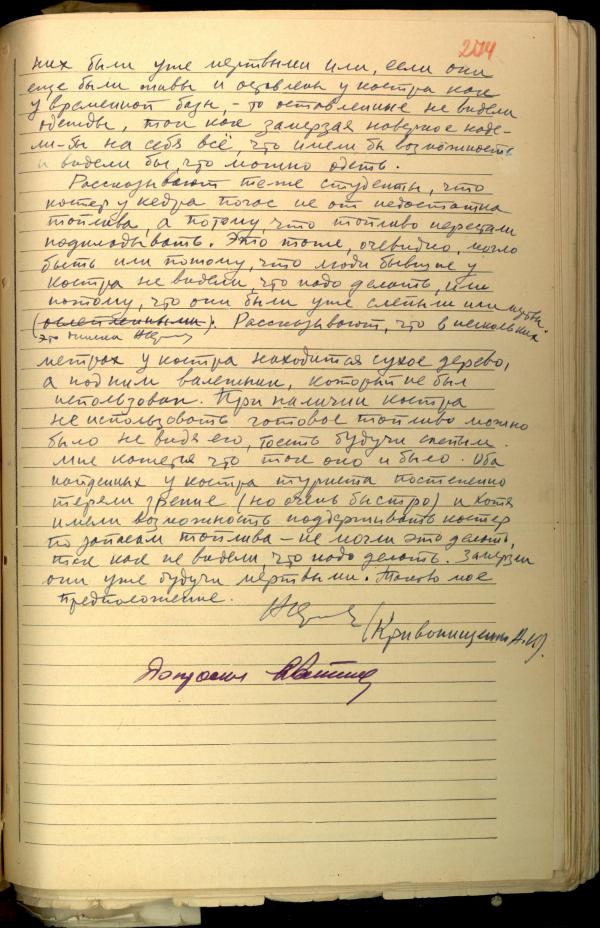 274
них были уже мертвыми или, если они
еще были живы и оставлены у костра как
у временной базы, – то оставленные не видели
одежды, так как замерзая наверное наде-
ли-бы на себя всё, что имели бы возможность
и видели бы, что можно одеть.
Рассказывают те же студенты, что
костер у кедра погас не от недостатка
топлива, а потому, что топливо перестали
подкладывать. Это тоже, очевидно, могло
быть или потому, что люди бывшие у
костра не видели, что надо делать, или
потому, что они были уже слепыми или мертвы.
(ослепленными). Рассказывают, что в нескольких
метрах у костра находится сухое дерево,
а под ним валежник, который не был
использован. При наличии костра
не использовать готовое топливо можно
было не видя его, то есть будучи слепым.
Мне кажется что так оно и было. Оба
найденных у костра туриста постепенно
теряли зрение (но очень быстро) и хотя
имели возможность поддерживать костер
по запасам топлива – не могли это делать,
так как не видели, что надо делать. Замерзли
они уже будучи мертвыми. Таково мое
предположение.
(Кривонищенко А.К).
Допросил